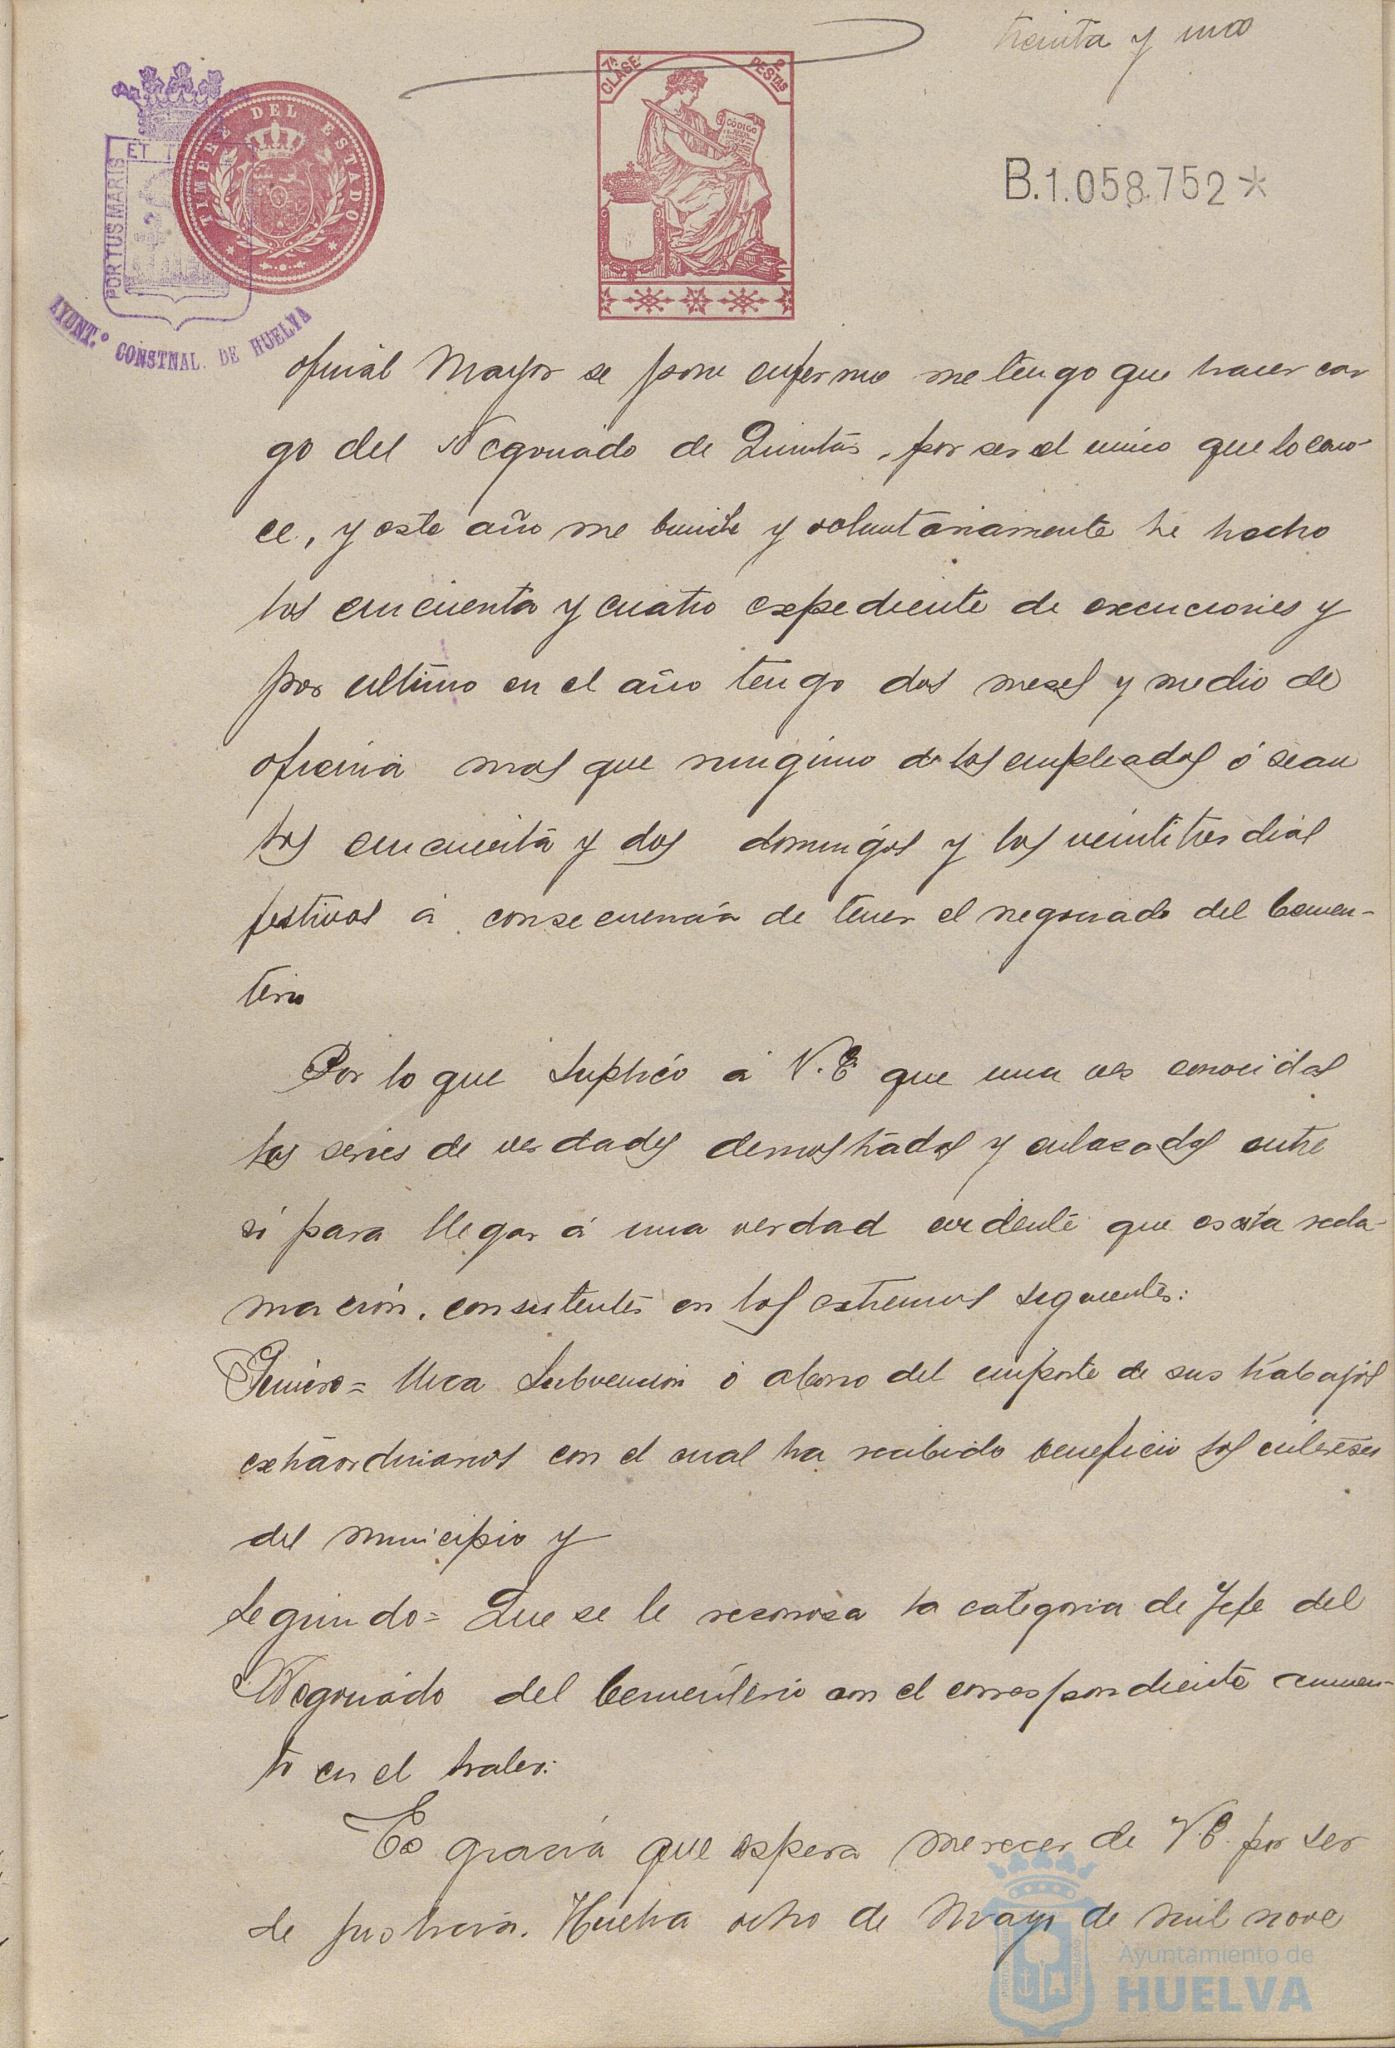 treinta y uno
7ª CLASE
2 PESTAS
CÓDIGO
TIMBRE DEL ESTADO
PORTUS MARIS ET
AYUNT.º CONSTNAL. DE HUELVA
B.1.058.752*
oficial Mayor se pone enfermo me tengo que hacer car
go del Negociado de Quintas, por ser el unico que lo cono-
ce, y este año me brinde y voluntariamente he hecho
los cincuenta y cuatro expediente de execuciones y
por ultimo en el año tengo dos meses y medio de
oficina mas que ninguno de los empleados ó sean
los cincuenta y dos domingos y los veintitres dias
festivos á consecuencia de tener el negociado del Cemen-
terio
Por lo que suplico á V.E que una ves conocidas
las series de verdades demostradas y enlasadas entre
si para llegar á una verdad evidente que es esta recla-
macion, consistentes en los extremos siguientes:
Primero = Una Subvencion ó abono del importe de sus trabajos
extraordinarios con el cual ha recibido beneficio los intereses
del municipio y
Segundo = Que se le reconosca la categoria de Jefe del
Negociado del Cementerio con el correspondiente aumen-
to en el haber:
Es gracia que espera merecer de V.E. por ser
de justicia. Huelva ocho de Mayo de mil nove
Ayuntamiento de
HUELVA